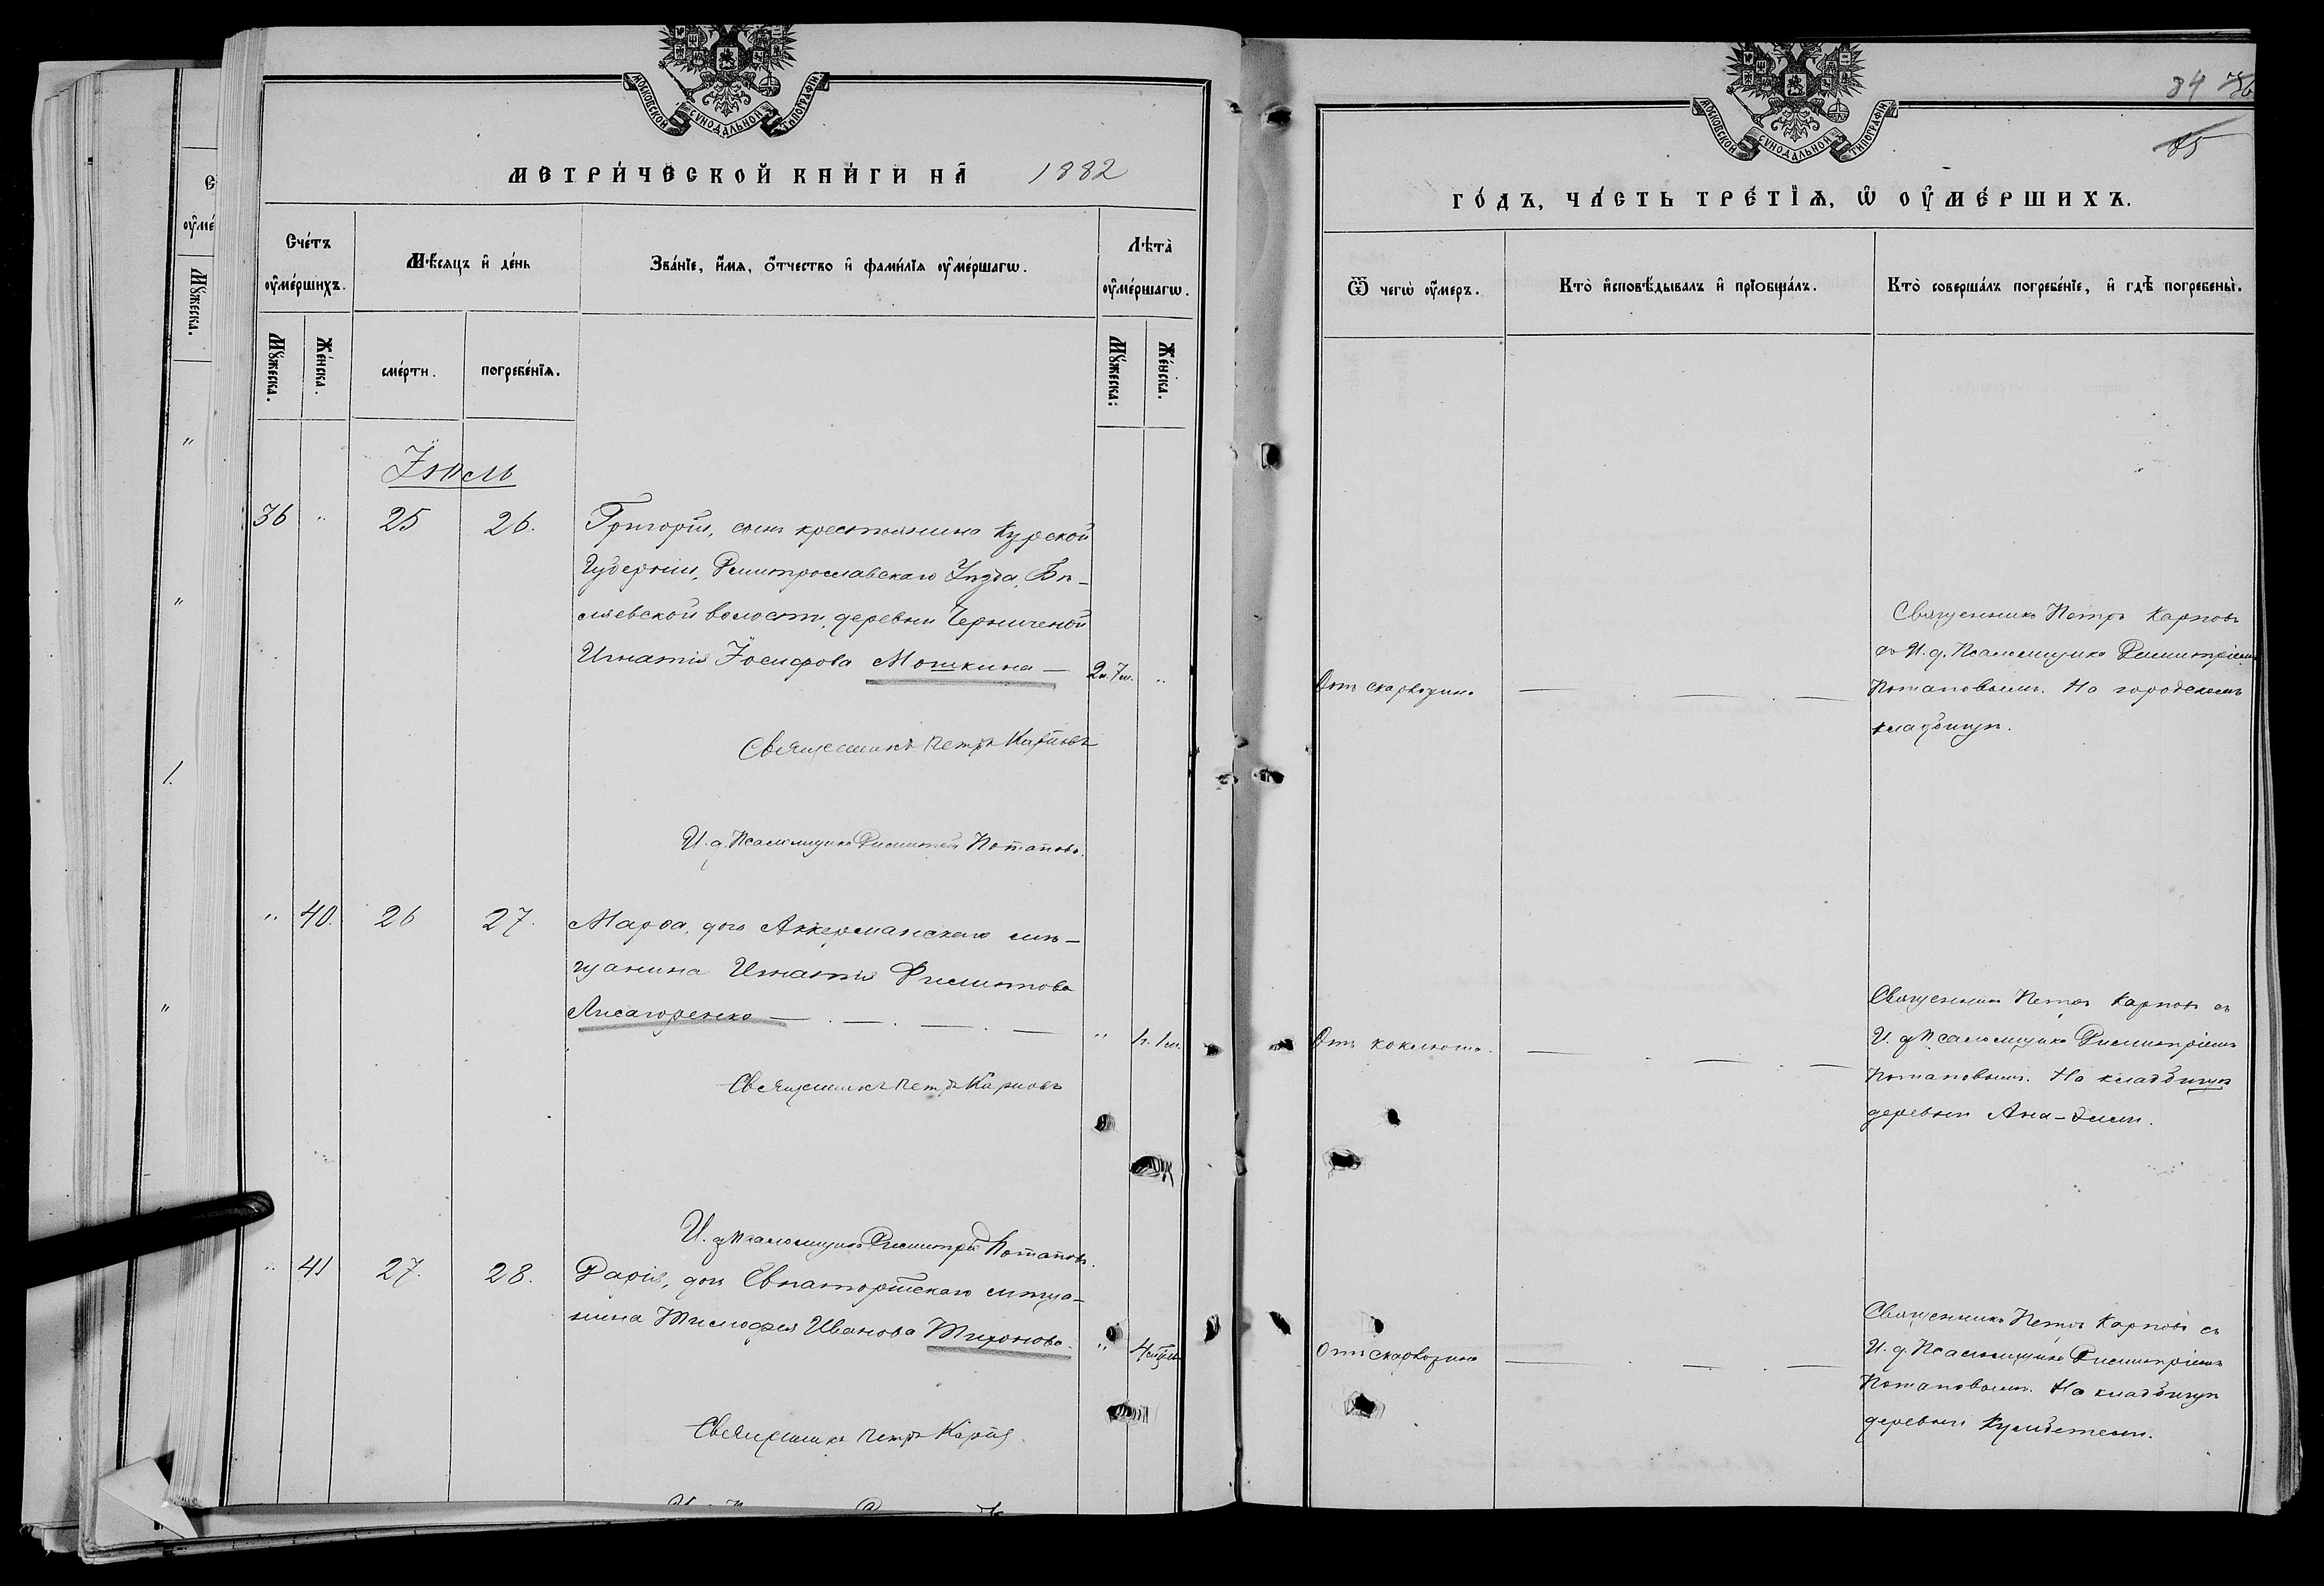 МОСКОВСКОЙ СѴНОДАЛЬНОЙ ТИПОГРАФІИ
МЕТРИ́ЧЕСКОЙ КНИ́ГИ НА̀ 1882
Сче́тъ оу҆ме́ршихъ.
Мѣ́сяцъ и҆ де́нь
Зва́нїе, и҆́мя, о҆́тчество и҆ фами́лїя оу҆ме́ршагѡ.
Лѣта̀ оу҆ме́ршагѡ.
Мꙋ́жеска.
Же́нска.
сме́рти.
погребе́нїя.
Мꙋ́жеска.
Же́нска.
Іюль
36 " 25 26.
Григорій, сынъ крестьянина Курской
Губерніи, Дмитрославскаго Уѣзда, Бѣ-
ляевской волости, деревни
Игнатія Іосифова Мошкина —
2л. 7м. "
Священникъ Петръ Карповъ
И. д. Псаломщика Димитрій Потаповъ.
" 40. 26 27.
Марѳа, дочь Аккерманскаго мѣ-
щанина Игнатія Филиппова
Лисагоренко — . — . — . —
" 1г. 1м.
Священникъ Петръ Карповъ
И. д. Псаломщика Димитрій Потаповъ.
" 41 27. 28.
Дарія, дочь Евпаторійскаго мѣща-
нина Тимофея Иванова Тихонова.
"
Священникъ Петръ Карповъ
МОСКОВСКОЙ СѴНОДАЛЬНОЙ ТИПОГРАФІИ
84
85
ГО́ДЪ, ЧА́СТЬ ТРЕ́ТЇѦ, Ѡ҆ ОУ҆МЕ́РШИХЪ.
Ѿ чегѡ̀ оу҆́меръ.
Кто̀ и҆сповѣ́дывалъ и҆ прїобща́лъ.
Кто̀ соверша́лъ погребе́нїе, и҆ гдѣ̀ погребены̀.
Отъ скарлатины
— . — . —
Священникъ Петръ Карповъ
съ И. д. Псаломщика Димитріемъ
Потаповымъ. На городскомъ
кладбищѣ.
Отъ коклюша.
— . — . —
Священникъ Петръ Карповъ съ
И. д. Псаломщика Димитріемъ
Потаповымъ. На кладбищѣ
деревни Ана-Эли.
Отъ скарлатины
— . — . —
Священникъ Петръ Карповъ съ
И. д. Псаломщика Димитріемъ
Потаповымъ. На кладбищѣ
деревни